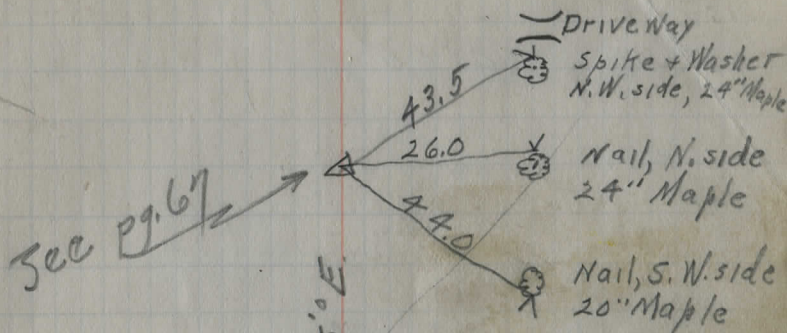 Driveway
Spike & Washer
N.W. side, 24" Maple
43.5
26.0
Nail, N. side
24" Maple
See pg. 67
44.0
Nail, S.W. side
20" Maple